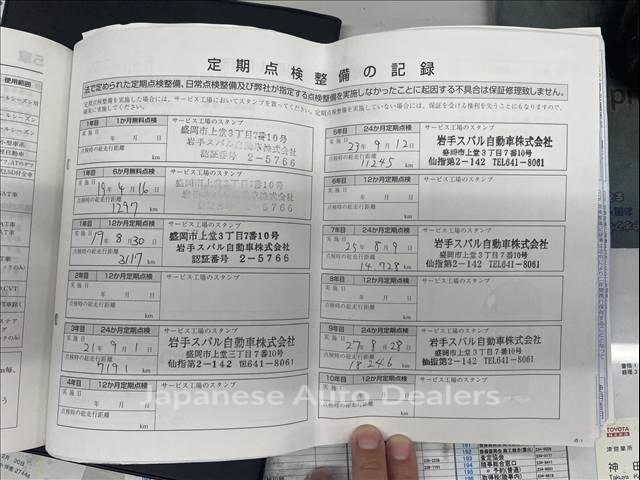 定期点検整備の記録
法で定められた定期点検整備、日常点検整備及び弊社が指定する点検整備を実施しなかったことに起因する不具合は保証修理致しません。
定期点検整備を実施した場合には、サービス工場においてスタンプを貰ってください。定期点検整備を実施していない場合には、保証を受ける権利を失うことにもなりますので、
確実に実施してください。
1年目 1か月無料点検 サービス工場のスタンプ
実施日 年 月 日
点検時の総走行距離
km
盛岡市上堂3丁目7番10号
岩手スバル自動車株式会社
認証番号 2-5766
1年目 6か月無料点検 サービス工場のスタンプ
実施日 19年 4月 16日
点検時の総走行距離
1297 km
盛岡市上堂3丁目7番10号
岩手スバル自動車株式会社
認証番号 2-5766
1年目 12か月定期点検 サービス工場のスタンプ
実施日 19年 8月 30日
点検時の総走行距離
3117 km
盛岡市上堂3丁目7番10号
岩手スバル自動車株式会社
認証番号 2-5766
2年目 12か月定期点検 サービス工場のスタンプ
実施日 年 月 日
点検時の総走行距離
km
3年目 24か月定期点検 サービス工場のスタンプ
実施日 21年 9月 1日
点検時の総走行距離
7191 km
岩手スバル自動車株式会社
盛岡市上堂三丁目7番10号
仙指第2-142 TEL641-8061
4年目 12か月定期点検 サービス工場のスタンプ
実施日 年 月 日
点検時の総走行距離
km
5年目 24か月定期点検 サービス工場のスタンプ
実施日 23年 9月 12日
点検時の総走行距離
11245 km
岩手スバル自動車株式会社
盛岡市上堂3丁目7番10号
仙指第2-142 TEL641-8061
6年目 12か月定期点検 サービス工場のスタンプ
実施日 年 月 日
点検時の総走行距離
km
7年目 24か月定期点検 サービス工場のスタンプ
実施日 25年 8月 9日
点検時の総走行距離
14,728 km
岩手スバル自動車株式会社
盛岡市上堂3丁目7番10号
仙指第2-142 TEL641-8061
8年目 12か月定期点検 サービス工場のスタンプ
実施日 年 月 日
点検時の総走行距離
km
9年目 24か月定期点検 サービス工場のスタンプ
実施日 27年 8月 28日
点検時の総走行距離
18,246 km
岩手スバル自動車株式会社
盛岡市上堂3丁目7番10号
仙指第2-142 TEL641-8061
10年目 12か月定期点検 サービス工場のスタンプ
実施日 年 月 日
点検時の総走行距離
km
Japanese Auto Dealers
5章
使用範囲
TOYOTA
神田